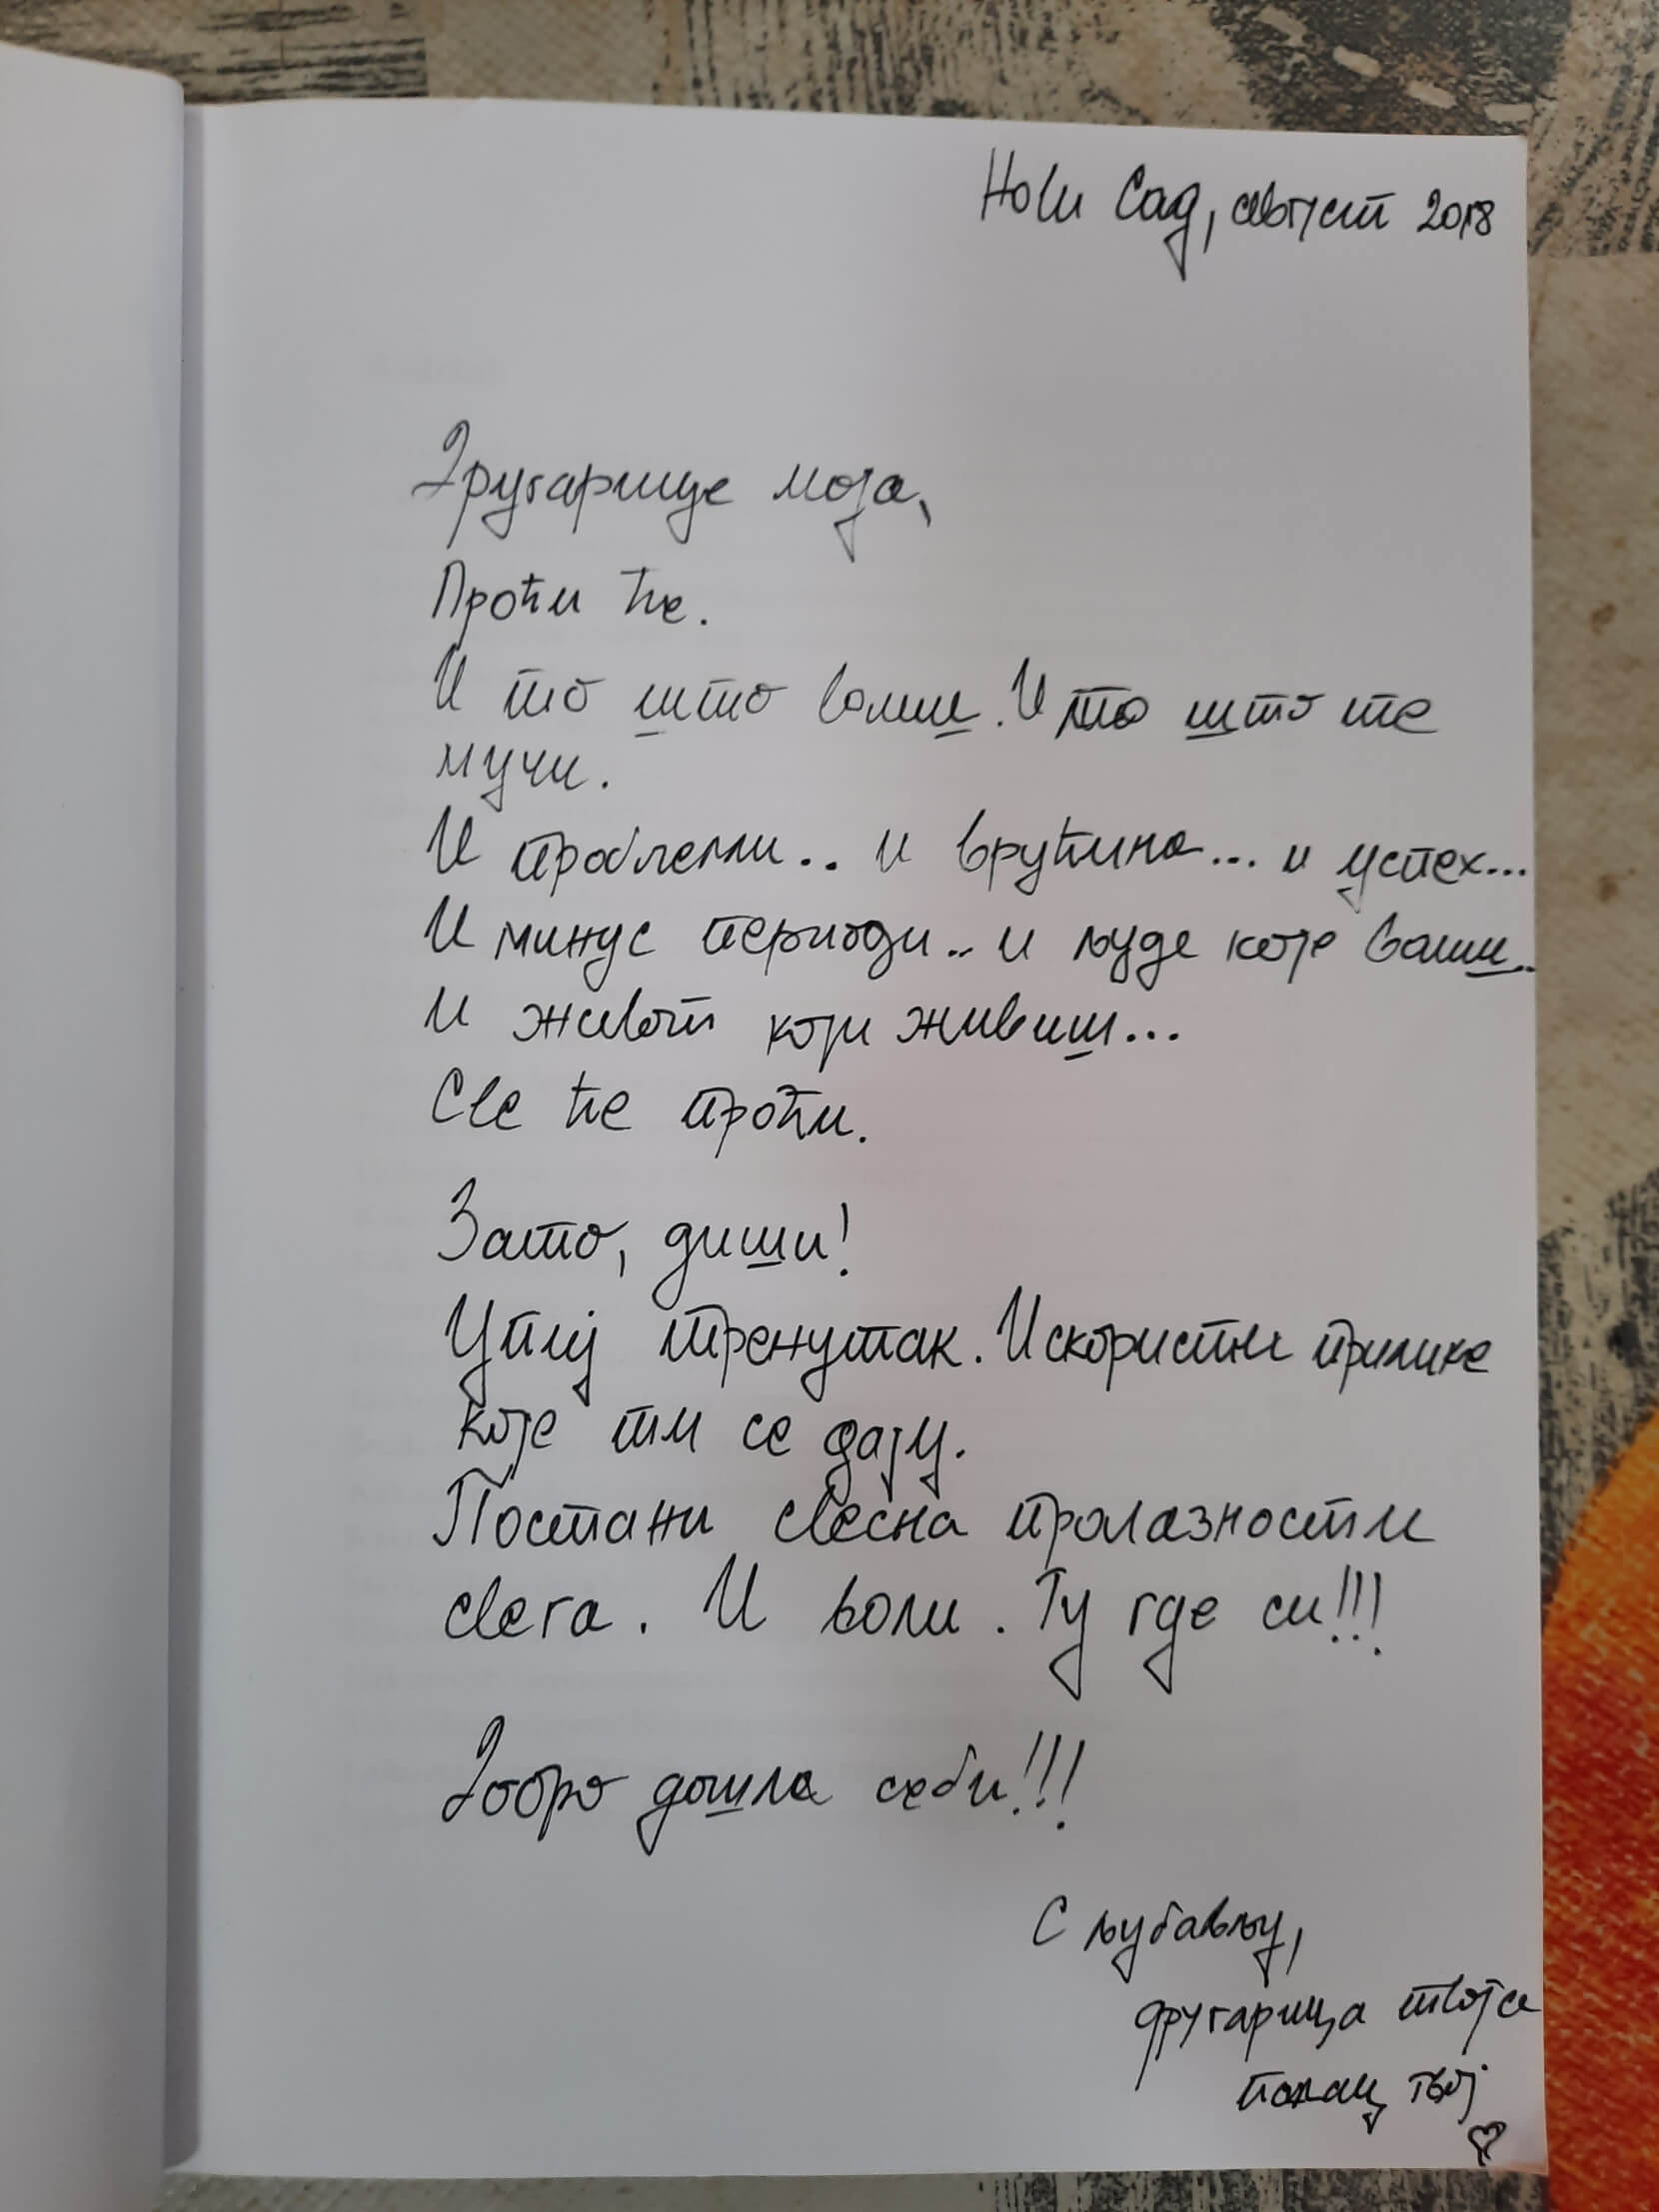 Нови Сад, август 2018
Другарице моја,
Проћи ће.
И то што волиш. И то што те
мучи.
И проблеми.. и врућина... и успех...
И минус периоди.. и људе које волиш..
И живот који живиш...
Све ће проћи.
Зато, диши!
Упиј тренутак. Искористи прилике
које ти се дају.
Постани свесна пролазности
свега. И воли. Ту где си!!!
Добро дошла себи!!!
С љубављу,
другарица твоја
твој